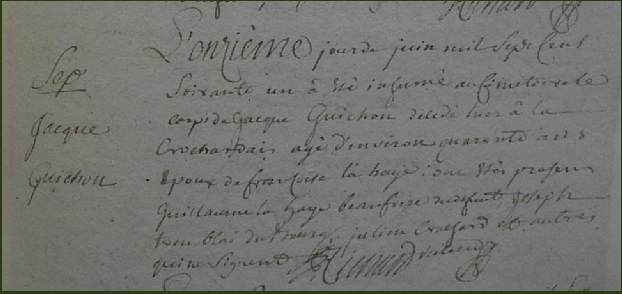 L'onzième jour de juin mil Sept Cent
Soixante un a été inhumé au Cimetiere le
Sep.
corps de Jacque Guichon décédé hier à la
Jacque
Crochardais agé d'environ quarante ans
Guichon
Epoux de françoise la haye: ont étés presens
Guillaume la haye beaufrere du defunt, Joseph
du Bourg, julien Crochard et autres
qui ne Signent